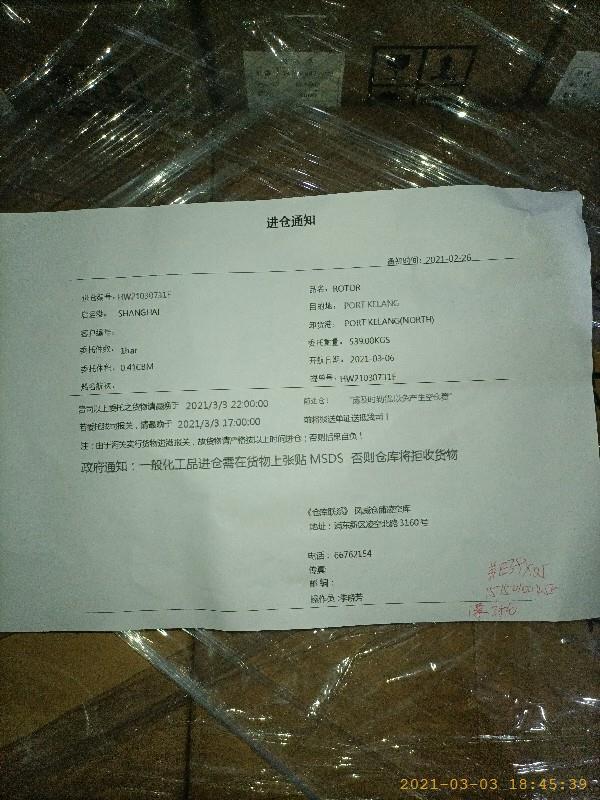 进仓通知
通知时间：2021-02-26
进仓编号：HW21030731F
品名：ROTOR
启运港： SHANGHAI
目的地： PORT KELANG
客户编号：
卸货港： PORT KELANG(NORTH)
委托件数：
委托重量：539.00KGS
委托体积：0.41CBM
开航日期：2021-03-06
船名航次：
提单号：HW21030731F
贵司以上委托之货物请最晚于 2021/3/3 22:00:00
前进仓！
若委托我司报关，请最晚于 2021/3/3 17:00:00
前将报关单证送抵我司！
注：由于海关实行货物进港报关，故货物请严格按以上时间进仓；否则后果自负！
政府通知：一般化工品进仓需在货物上张贴 MSDS 否则仓库将拒收货物
《仓库联系》
地址：浦东新区凌空北路 3160 号
电话：66762154
传真
邮编：
操作员：李晓芳
2021-03-03 18:45:39